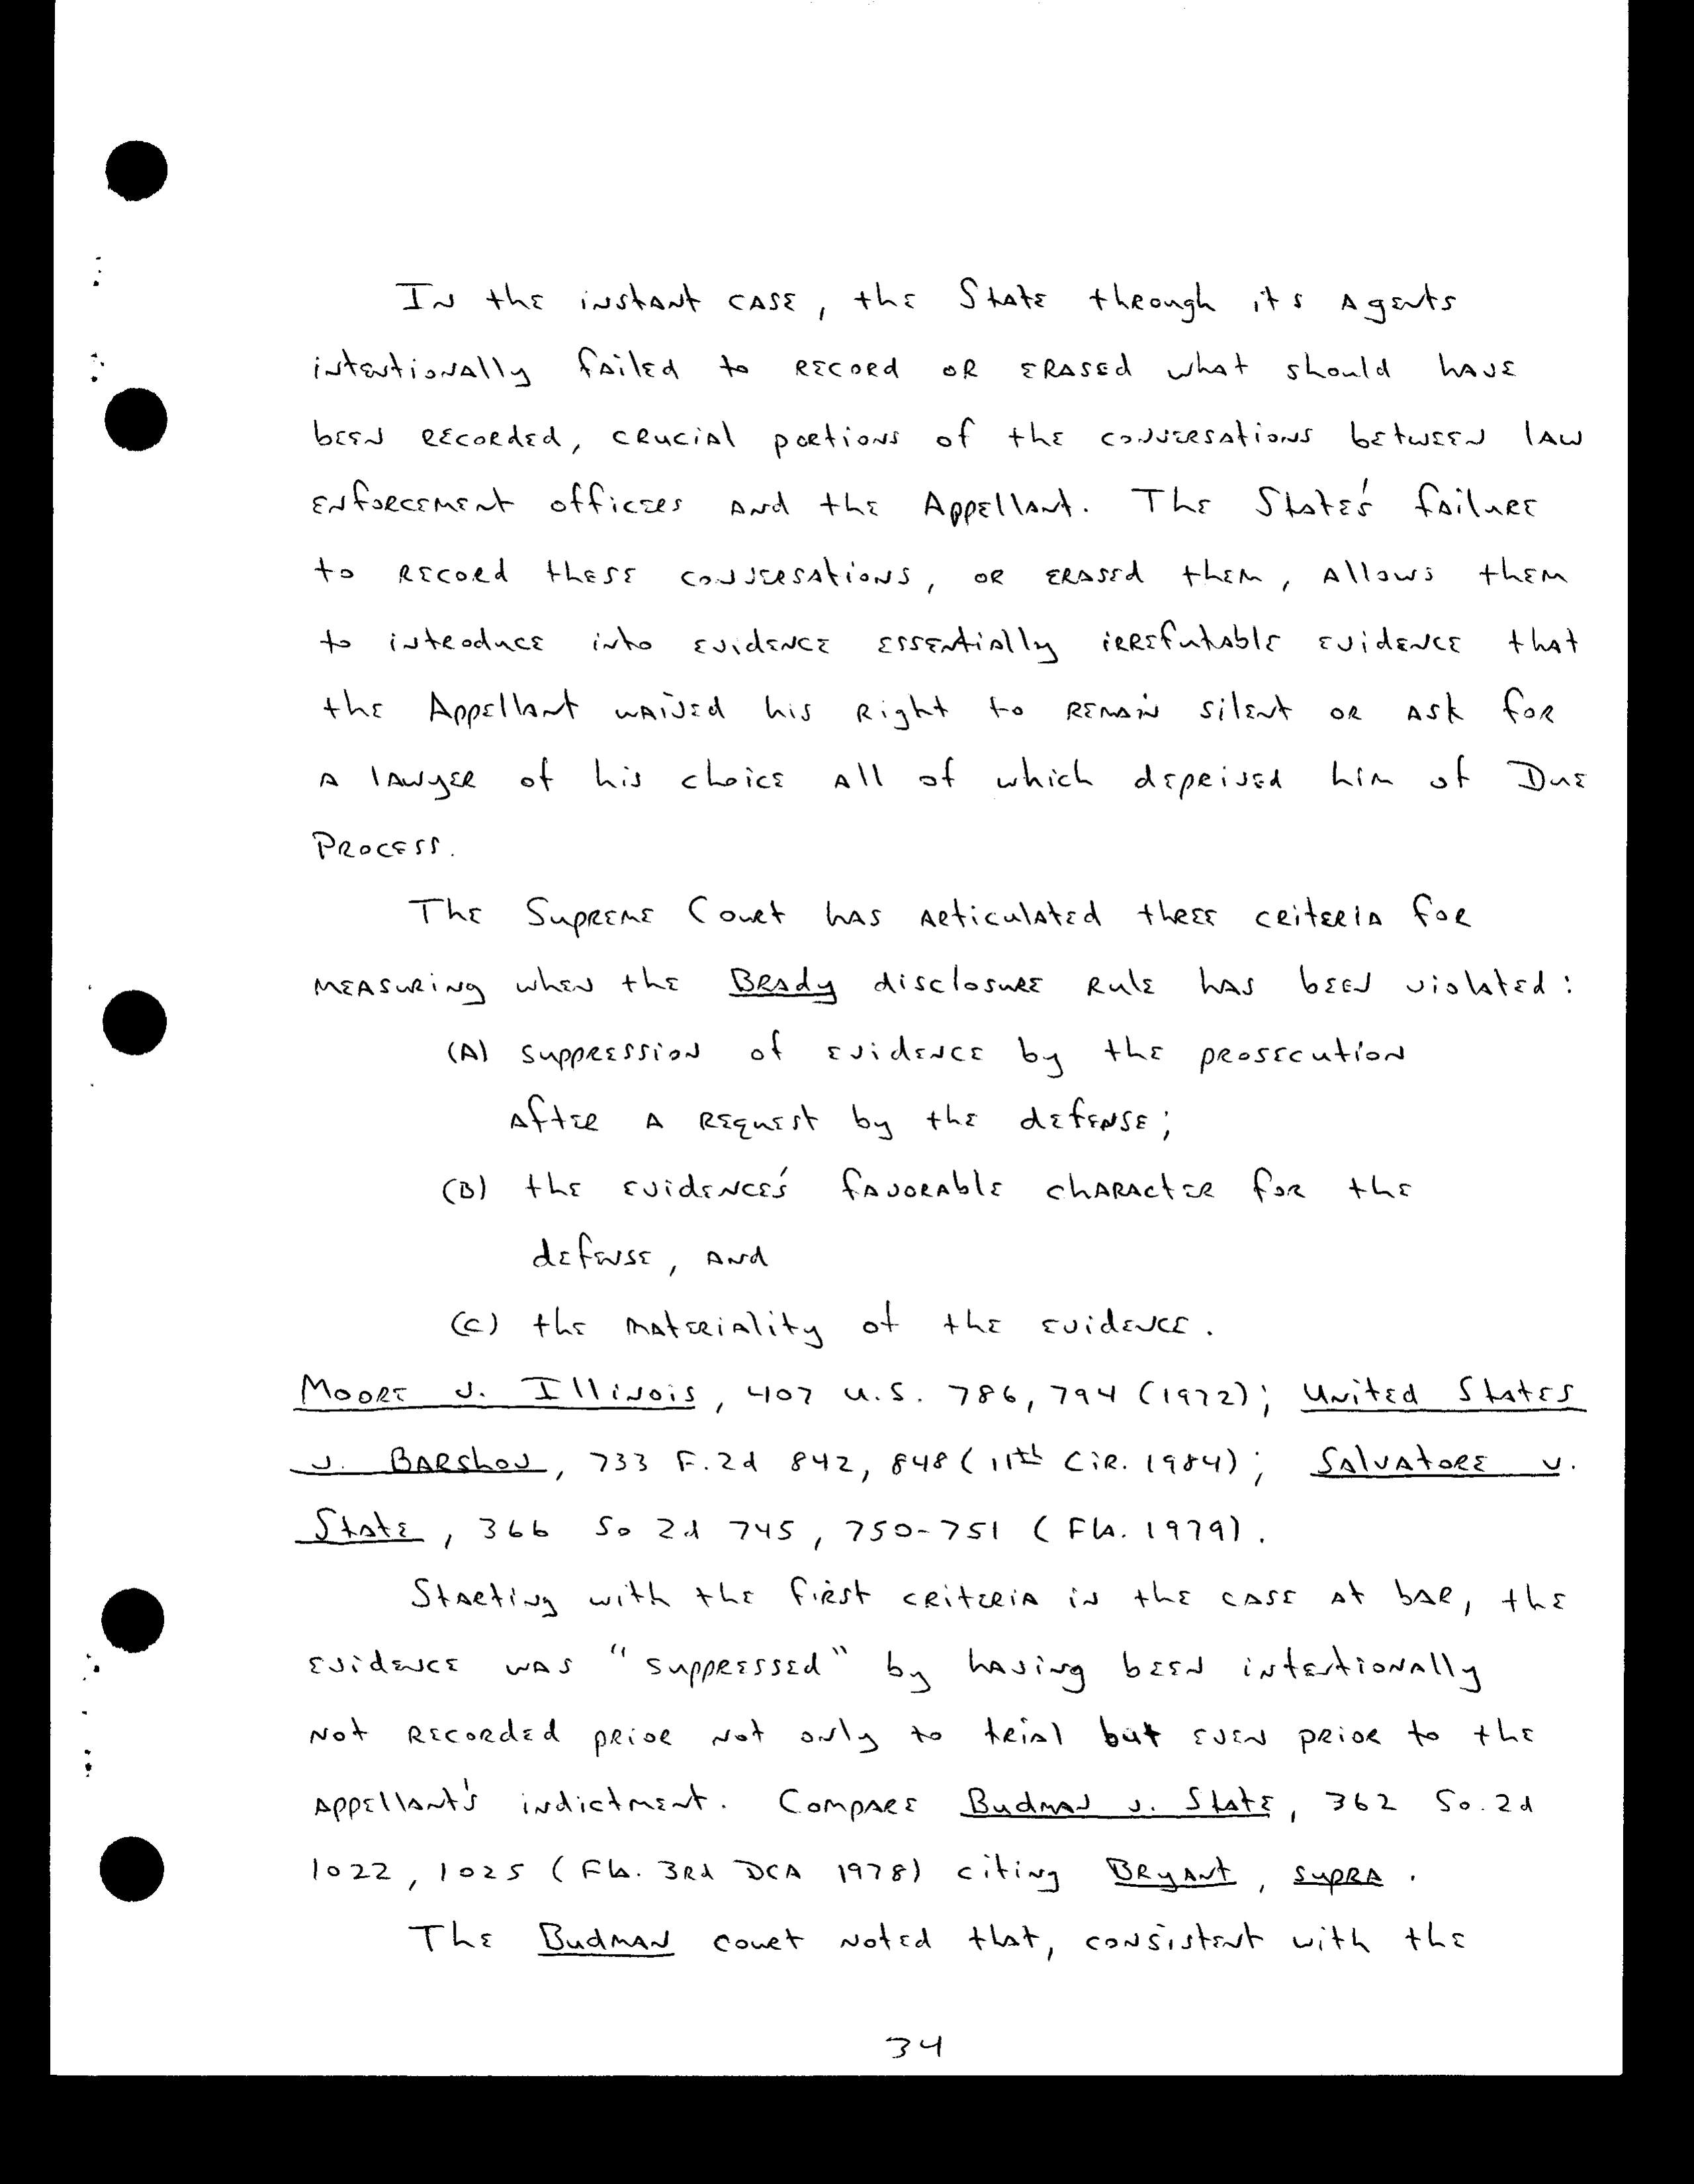 In the instant case, the State through its agents
intentionally failed to record or erased what should have
been recorded, crucial portions of the conversations between law
enforcement officers and the Appellant. The State's failure
to record these conversations, or erased them, allows them
to introduce into evidence essentially irrefutable evidence that
the Appellant waived his right to remain silent or ask for
a lawyer of his choice all of which deprived him of Due
Process.
The Supreme Court has articulated three criteria for
measuring when the Brady disclosure rule has been violated:
(A) suppression of evidence by the prosecution
after a request by the defense;
(B) the evidence's favorable character for the
defense, and
(C) the materiality of the evidence.
Moore v. Illinois, 407 U.S. 786, 794 (1972); United States
v. Barshov, 733 F.2d 842, 848 (11th Cir. 1984); Salvatore v.
State, 366 So 2d 745, 750-751 (Fla. 1979).
Starting with the first criteria in the case at bar, the
evidence was "suppressed" by having been intentionally
not recorded prior not only to trial but even prior to the
appellant's indictment. Compare Budman v. State, 362 So. 2d
1022, 1025 (Fla. 3rd DCA 1978) citing Bryant, supra.
The Budman court noted that, consistent with the
34